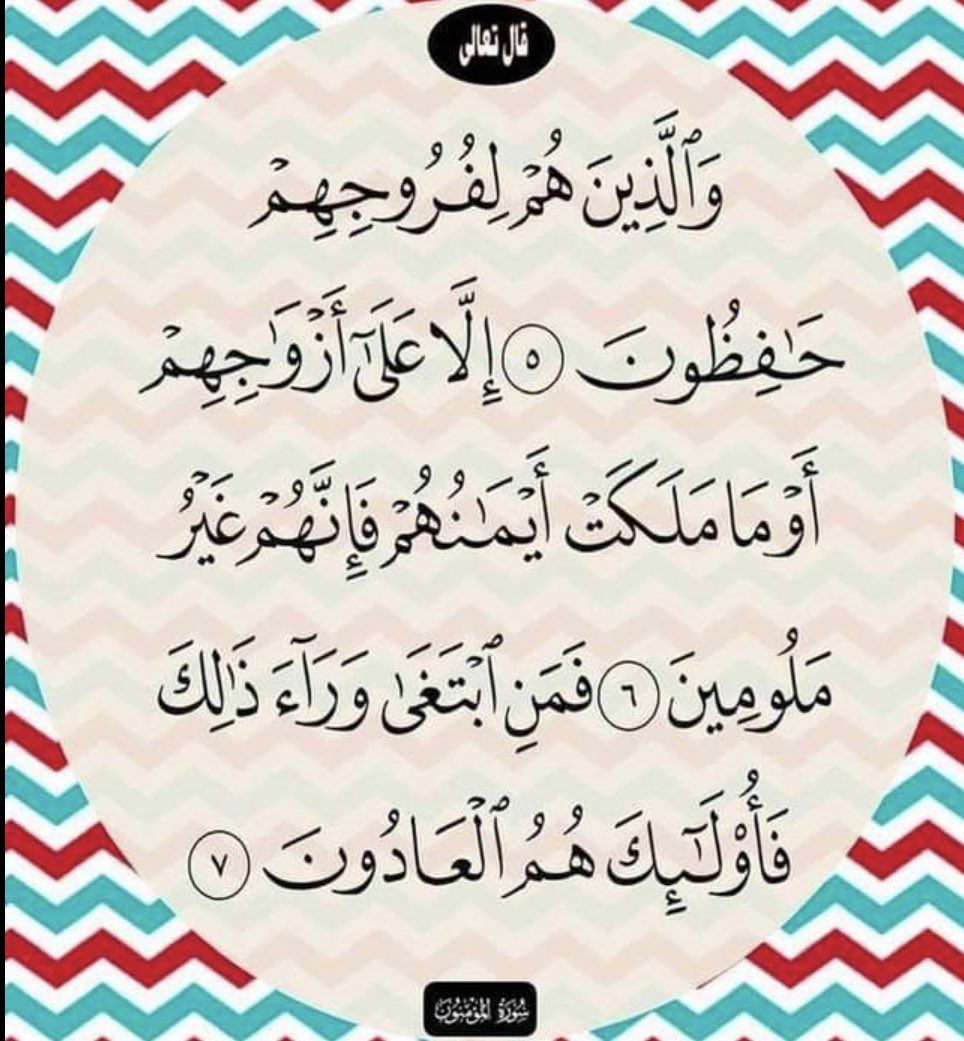 قال تعالى
وَٱلَّذِينَ هُمْ لِفُرُوجِهِمْ
حَٰفِظُونَ ٥ إِلَّا عَلَىٰٓ أَزْوَٰجِهِمْ
أَوْ مَا مَلَكَتْ أَيْمَٰنُهُمْ فَإِنَّهُمْ غَيْرُ
مَلُومِينَ ٦ فَمَنِ ٱبْتَغَىٰ وَرَآءَ ذَٰلِكَ
فَأُو۟لَٰٓئِكَ هُمُ ٱلْعَادُونَ ٧
سُورَةُ المُؤْمِنُونَ